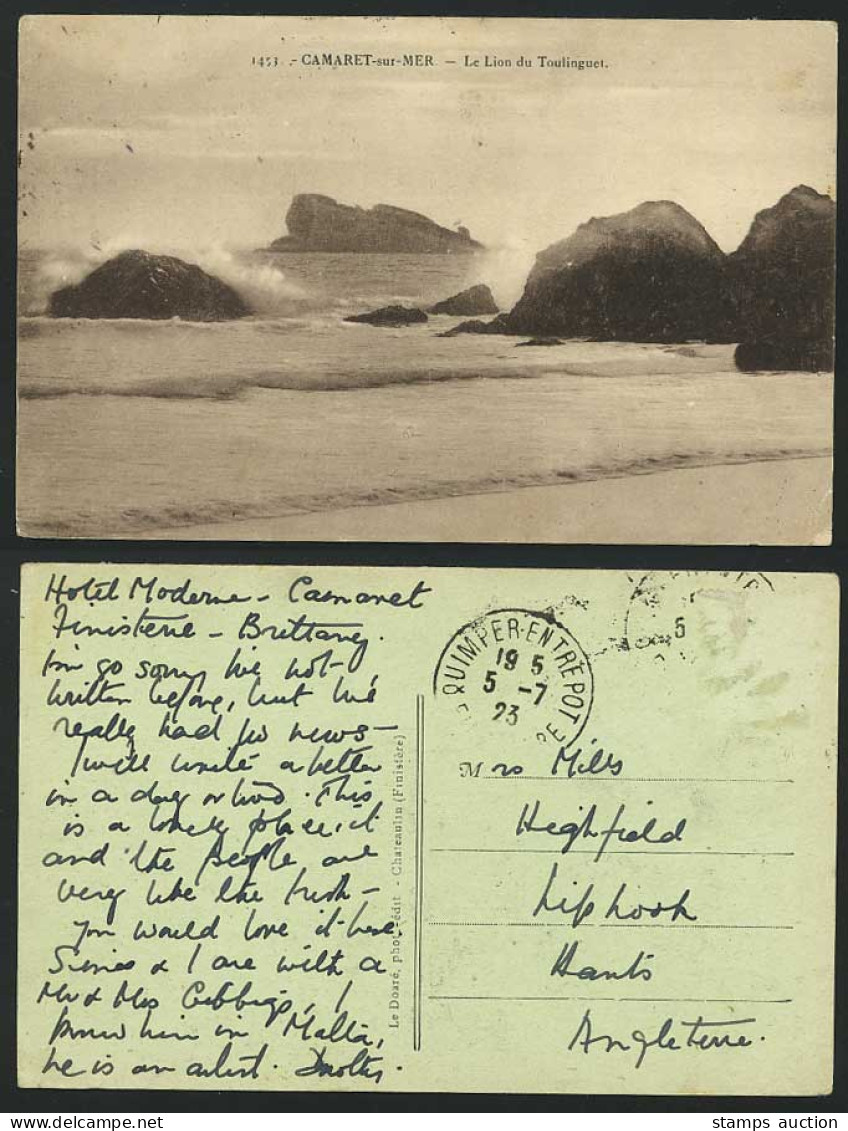 1453. - CAMARET-sur-MER. — Le Lion du Toulinguet.
Hotel Moderne - Camaret
Finisterre - Brittany.
I'm so sorry I've not
written before, but I've
really had no news -
I will write a letter
in a day or two. This
is a lonely place, it
and the people are
very like the Irish -
you would love it here.
& I are with a
Mr & Mrs I
knew him in Malta,
he is an artist.
Le Doaré, phot-édit - Chateaulin (Finistère)
QUIMPER-ENTREPOT
19 5
5 -7
23
5
Mrs Mills
Highfield
Liphook
Hants
Angleterre.
stamps auction